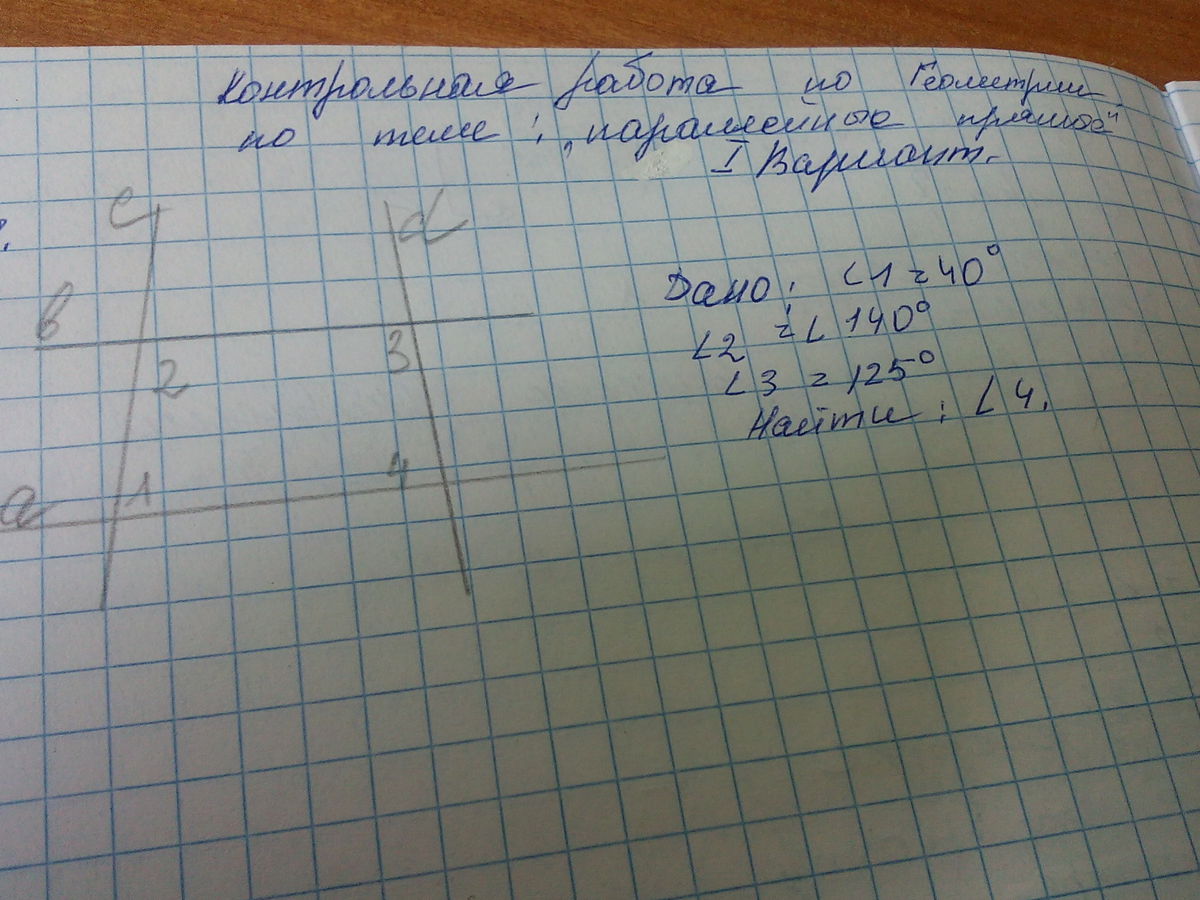 Контрольная работа по Геометрии
по теме: „параллейные прямые"
I Вариант.
c d
b
Дано: ∠1 = 40°
∠2 = ∠ 140°
3
2
∠3 = 125°
Найти: ∠4.
4
1
a